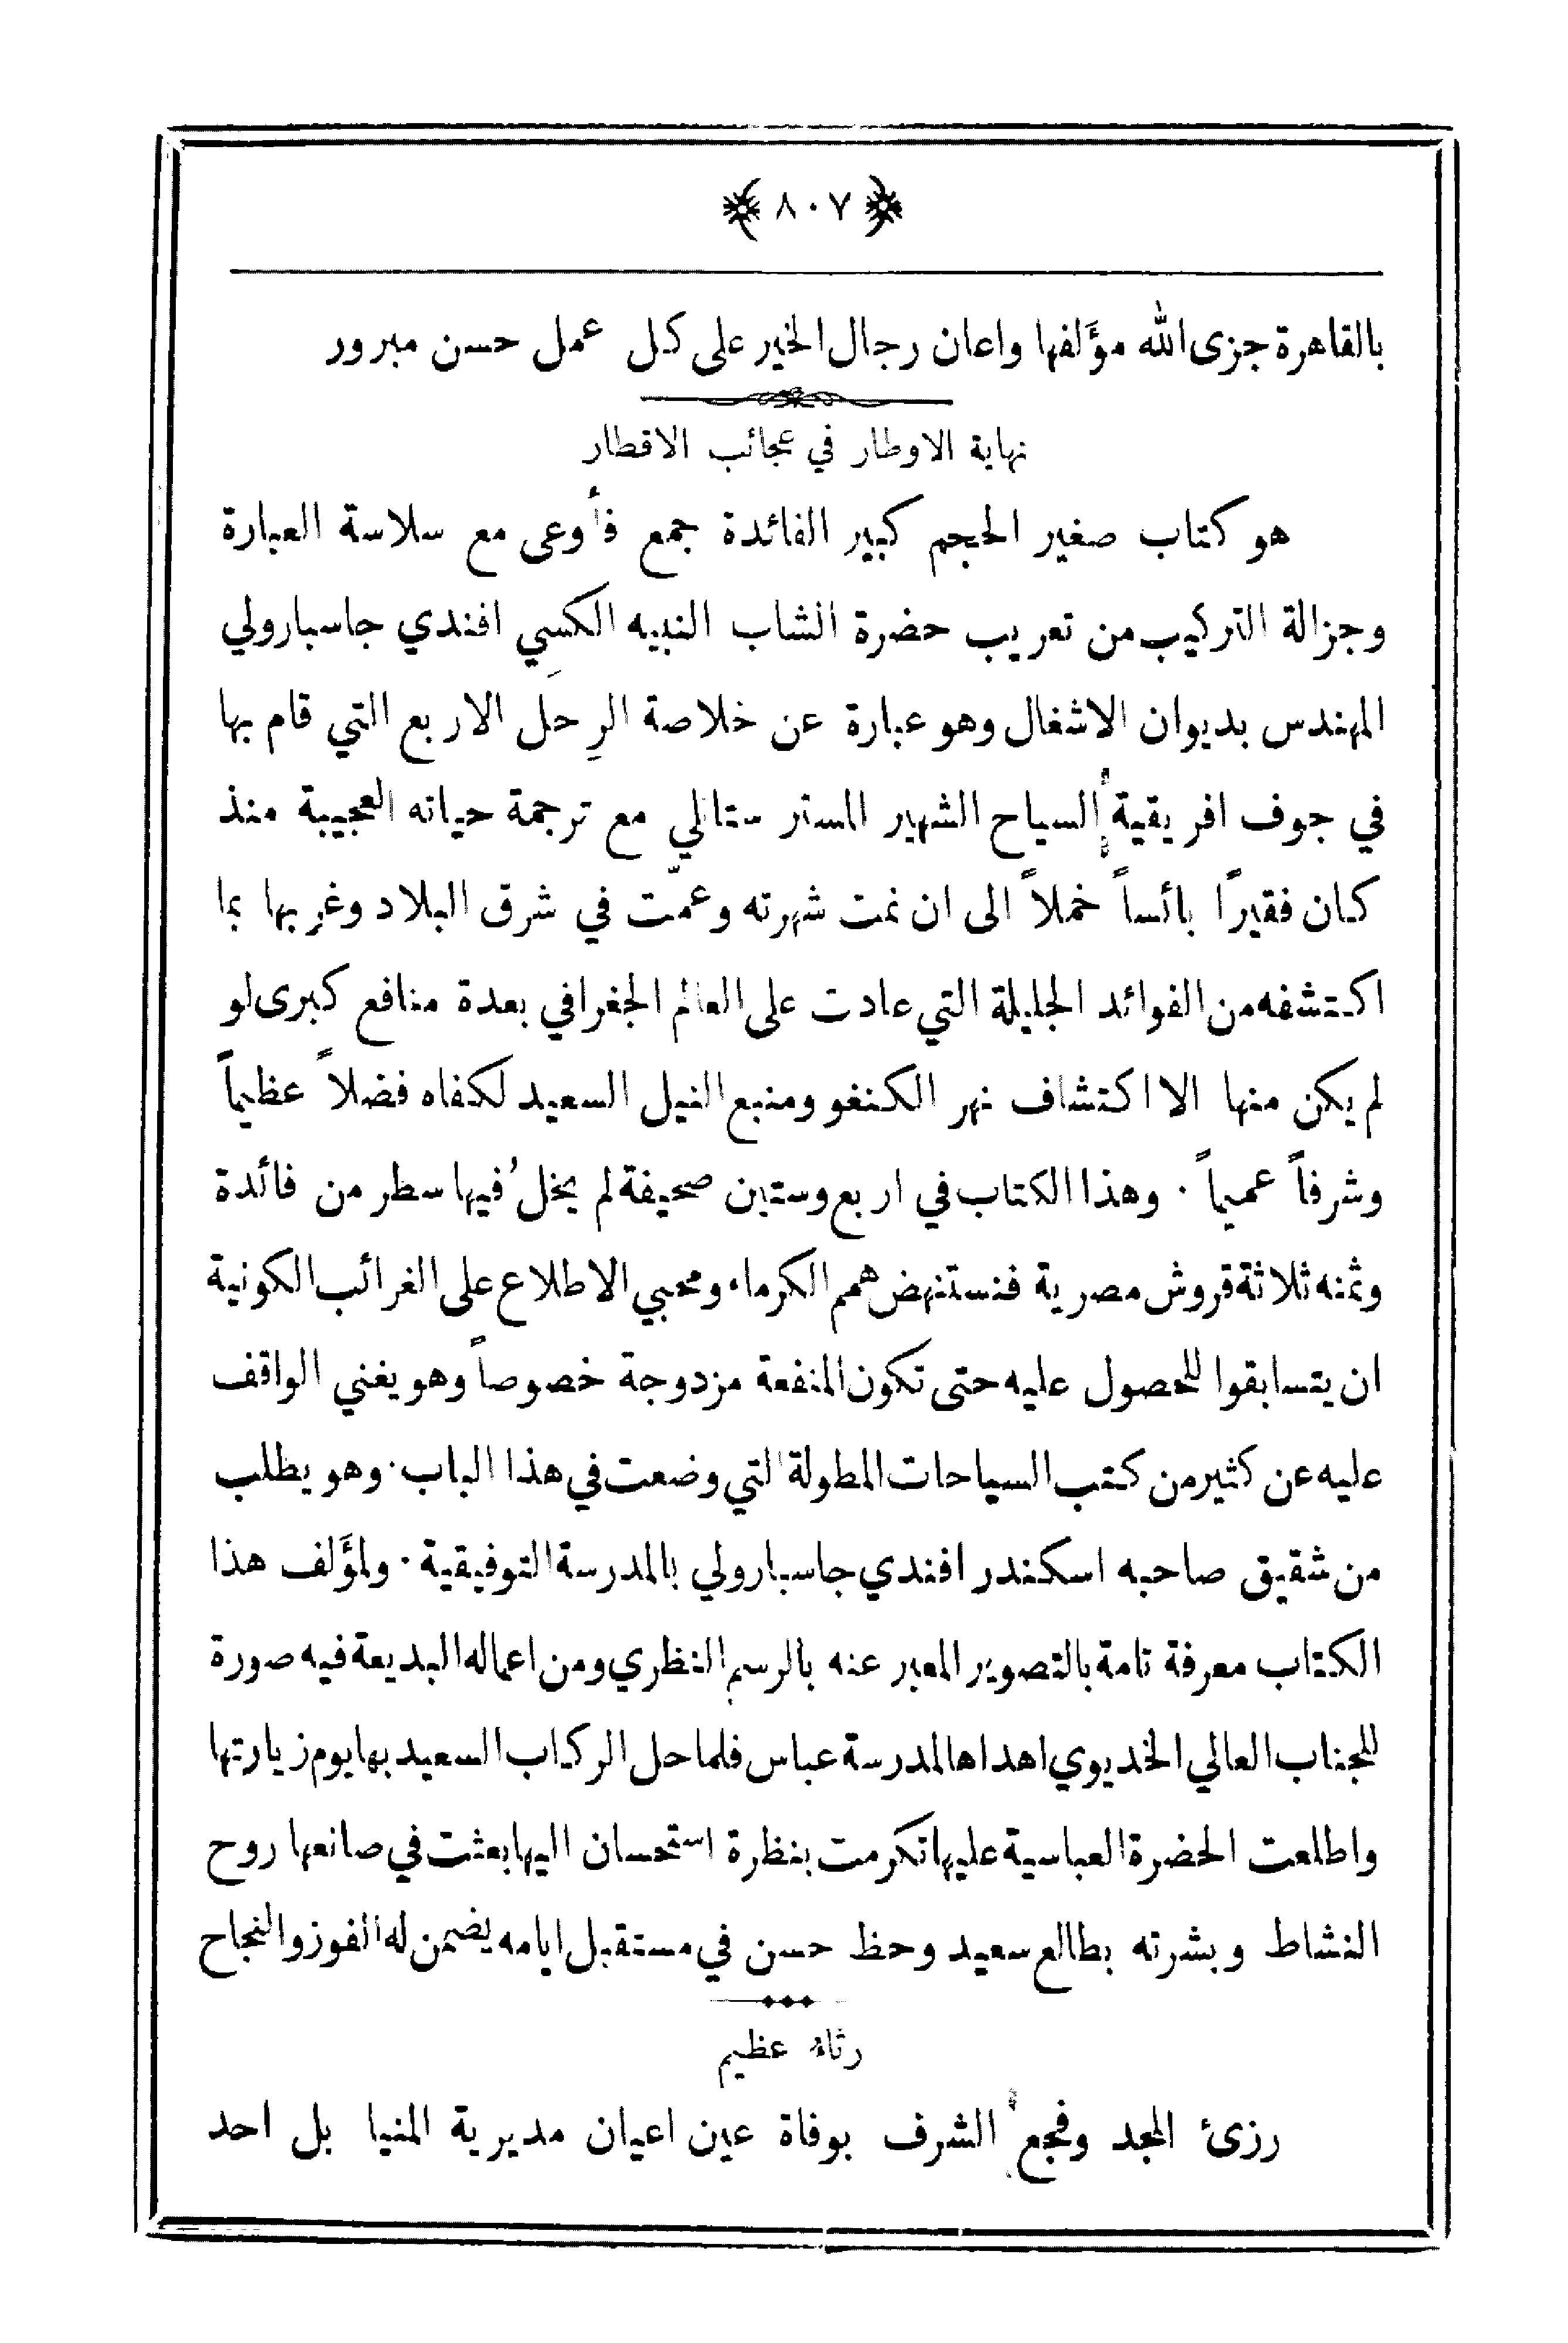 ﴿ ٨٠٧ ﴾
بالقاهرة جزى الله مؤَلفها واعان رجال الخير على كل عمل حسن مبرور
نهاية الاوطار في عجائب الاقطار
هو كتاب صغير الحجم كبير الفائدة جمع فأوعى مع سلاسة العبارة
وجزالة التركيب من تعريب حضرة الشاب النبيه الكسِي افندي جاسبارولي
المهندس بديوان الاشغال وهو عبارة عن خلاصة الرِحَل الاربع التي قام بها
في جوف افريقية السياح الشهير المستر ستانلي مع ترجمة حياته العجيبة منذ
كان فقيرًا بائساً خملاً الى ان نمت شهرته وعمّت في شرق البلاد وغربها بما
اكتشفه من الفوائد الجليلة التي عادت على العالم الجغرافي بعدة منافع كبرى لو
لم يكن منها الا اكتشاف نهر الكنغو ومنبع النيل السعيد لكفاه فضلاً عظيماً
وشرفاً عميماً . وهذا الكتاب في اربع وستين صحيفة لم يخلُ فيها سطر من فائدة
وثمنه ثلاثة قروش مصرية فنستنهض همم الكرماء ومحبي الاطلاع على الغرائب الكونية
ان يتسابقوا للحصول عليه حتى تكون المنفعة مزدوجة خصوصاً وهو يغني الواقف
عليه عن كثير من كتب السياحات المطولة التي وضعت في هذا الباب . وهو يطلب
من شقيق صاحبه اسكندر افندي جاسبارولي بالمدرسة التوفيقية . ولمؤَلف هذا
الكتاب معرفة تامة بالتصوير المعبر عنه بالرسم النظري ومن اعماله البديعة فيه صورة
للجناب العالي الخديوي اهداها لمدرسة عباس فلما حل الركاب السعيد بها يوم زيارتها
واطلعت الحضرة العباسية عليها تكرمت بنظرة استحسان اليها بعثت في صانعها روح
النشاط وبشرته بطالع سعيد وحظ حسن في مستقبل ايامه يضمن له الفوز والنجاح
رثاء عظيم
رزئ المجد وفجع الشرف بوفاة عين اعيان مديرية المنيا بل احد